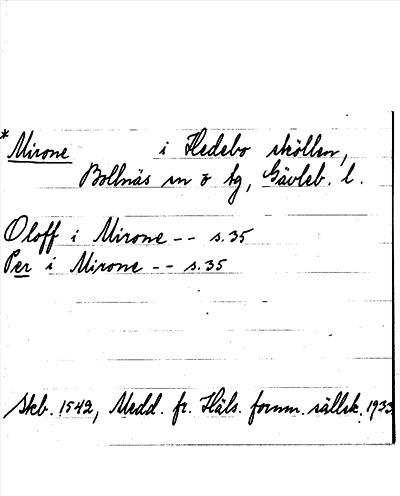 *Mirone i Hedebo sköllen,
Bollnäs sn o tg, Gävleb. l.
Oloff i Mirone -- s.35
Per i Mirone -- s.35
Skb. 1542, Medd. fr. Häls. fornm. sällsk. 1933